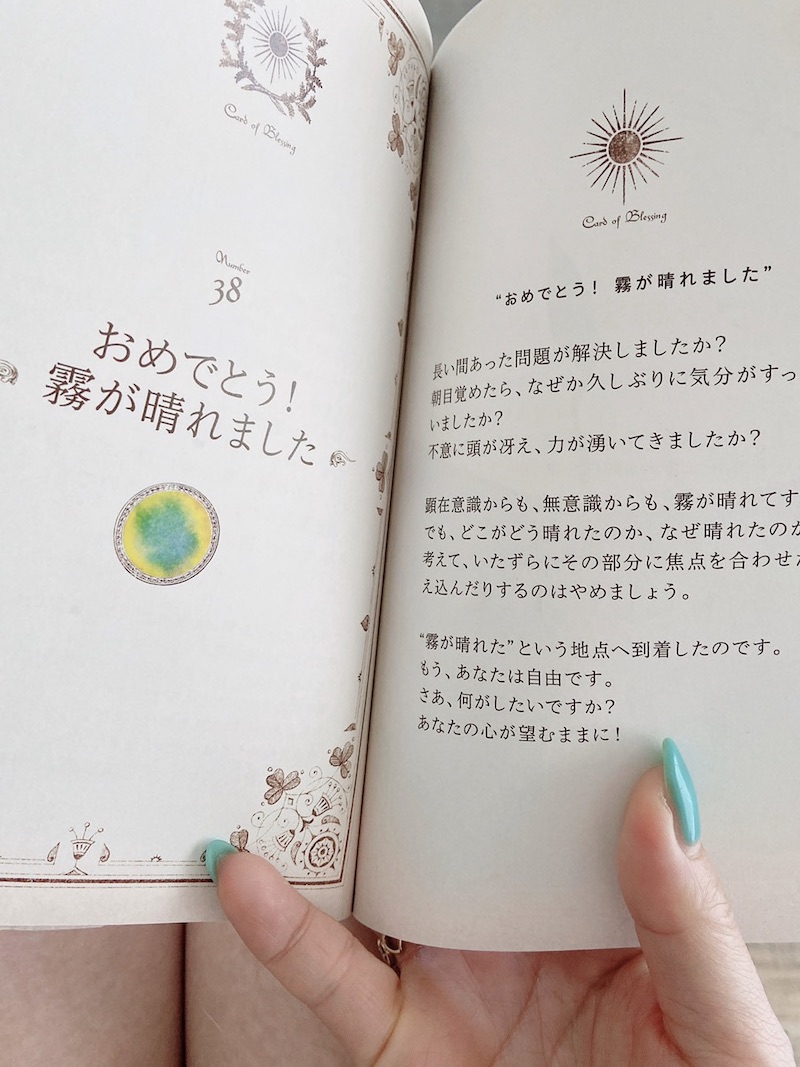 Card of Blessing
Number
38
おめでとう!
霧が晴れました
Card of Blessing
“おめでとう! 霧が晴れました”
長い間あった問題が解決しましたか?
朝目覚めたら、なぜか久しぶりに気分がすっ
いましたか?
不意に頭が冴え、力が湧いてきましたか?
顕在意識からも、無意識からも、霧が晴れてす
でも、どこがどう晴れたのか、なぜ晴れたのか
考えて、いたずらにその部分に焦点を合わせた
え込んだりするのはやめましょう。
“霧が晴れた”という地点へ到着したのです。
もう、あなたは自由です。
さあ、何がしたいですか?
あなたの心が望むままに!